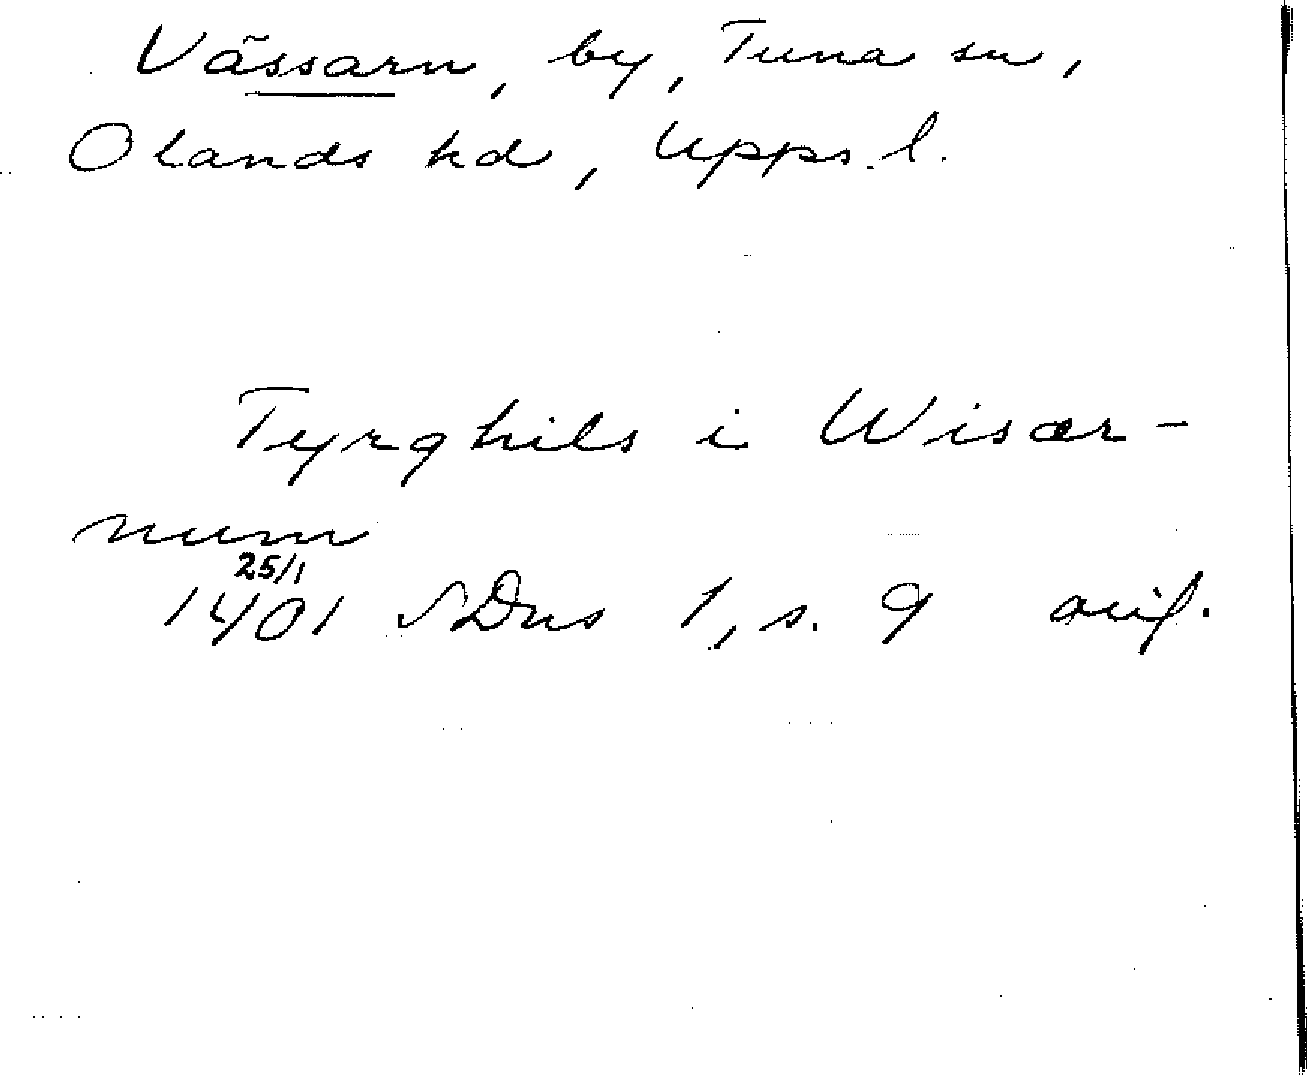 Vässarn, by, Tuna sn,
Olands hd, Upps. l.
Tyrghils i Wisær-
num
25/1
1401 SDns 1, s. 9 orig.